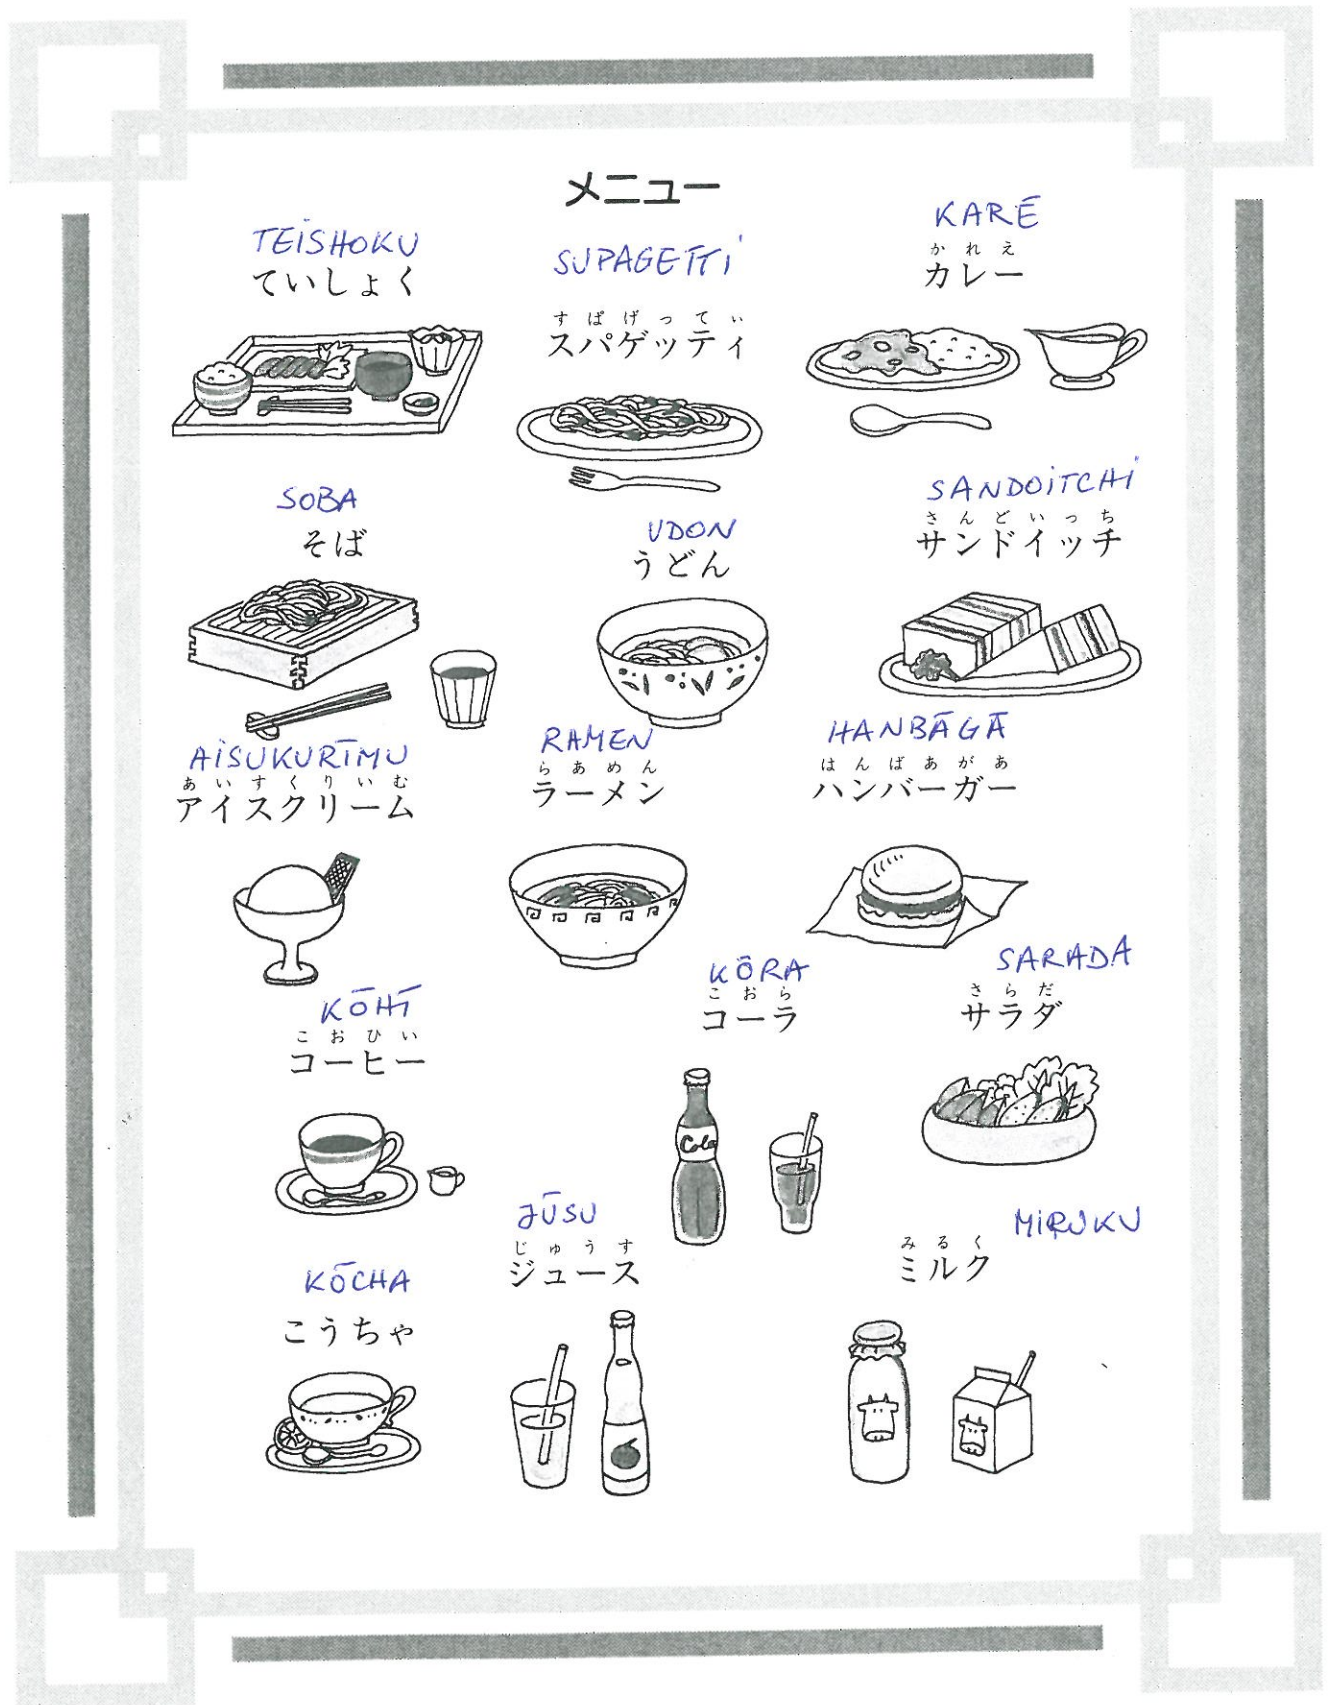 メニュー
TEISHOKU
ていしょく
SUPAGETTI
すぱげってぃ
スパゲッティ
KARĒ
かれえ
カレー
SOBA
そば
UDON
うどん
SANDOITCHI
さんどいっち
サンドイッチ
AISUKURĪMU
あいすくりいむ
アイスクリーム
RAMEN
らあめん
ラーメン
HANBĀGĀ
はんばあがあ
ハンバーガー
KŌHĪ
こおひい
コーヒー
KŌRA
こおら
コーラ
Cola
SARADA
さらだ
サラダ
KŌCHA
こうちゃ
JŪSU
じゅうす
ジュース
MIRUKU
みるく
ミルク